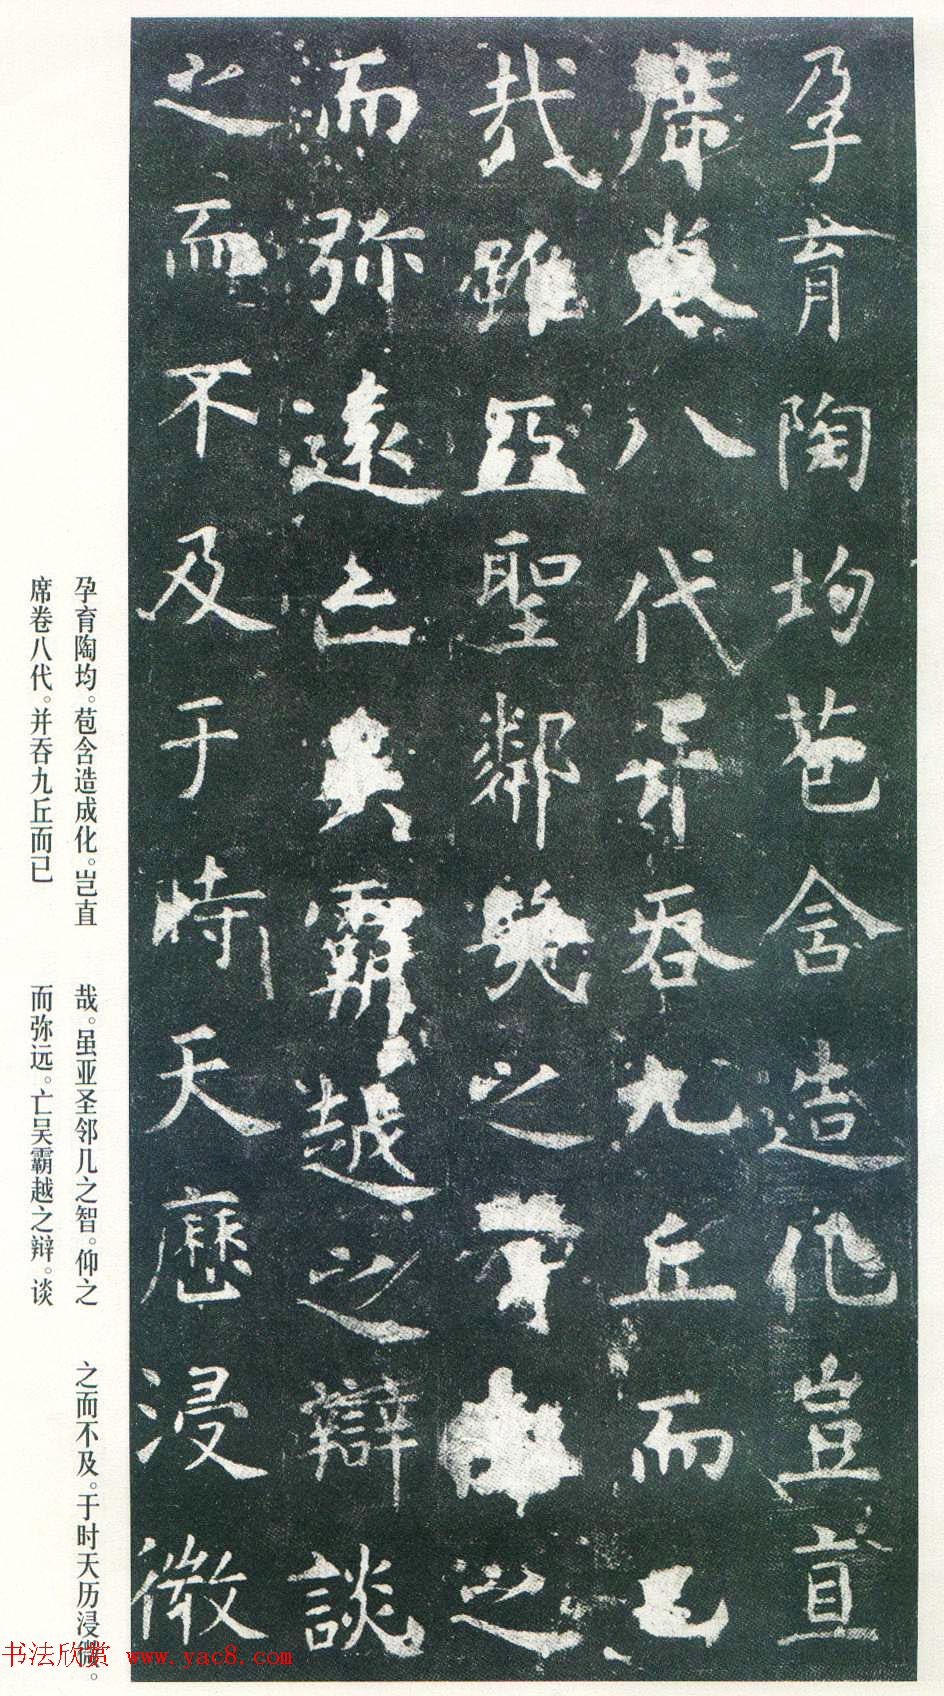 孕育陶均苞含造化豈直
席卷八代并吞九丘而已
哉雖亞聖鄰幾之智仰之
而弥遠亡吳霸越之辯談
之而不及于時天曆浸微
孕育陶均。苞含造成化。岂直
席卷八代。并吞九丘而已
哉。虽亚圣邻几之智。仰之
而弥远。亡吴霸越之辩。谈
之而不及。于时天历浸微。
书法欣赏 www.yac8.com